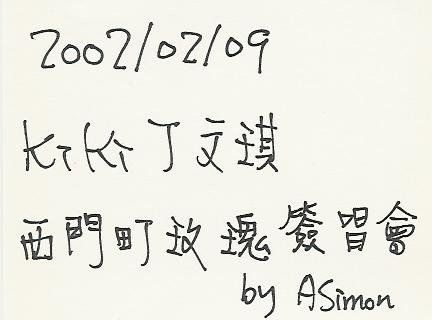 2002/02/09
KiKi 丁文琪
西門町玫瑰簽唱會
by ASimon